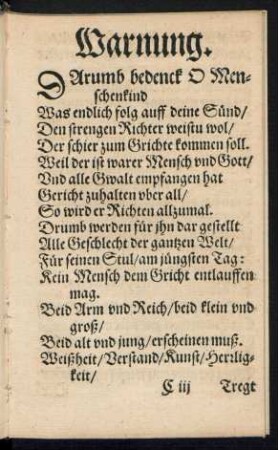 Warnung.
DArumb bedenck O Men-
schenkind
Was endlich folg auff deine Sünd/
Den strengen Richter weistu wol/
Der schier zum Grichte kommen soll.
Weil der ist warer Mensch vnd Gott/
Vnd alle Gwalt empfangen hat
Gericht zuhalten vber all/
So wird er Richten allzumal.
Drumb werden für jhn dar gestellt
Alle Geschlecht der gantzen Welt/
Für seinen Stul/am jüngsten Tag:
Kein Mensch dem Gricht entlauffen
mag.
Beid Arm vnd Reich/beid klein vnd
groß/
Beid alt vnd jung/erscheinen muß.
Weißheit/Verstand/Kunst/Herrlig-
keit/
C iij Tregt